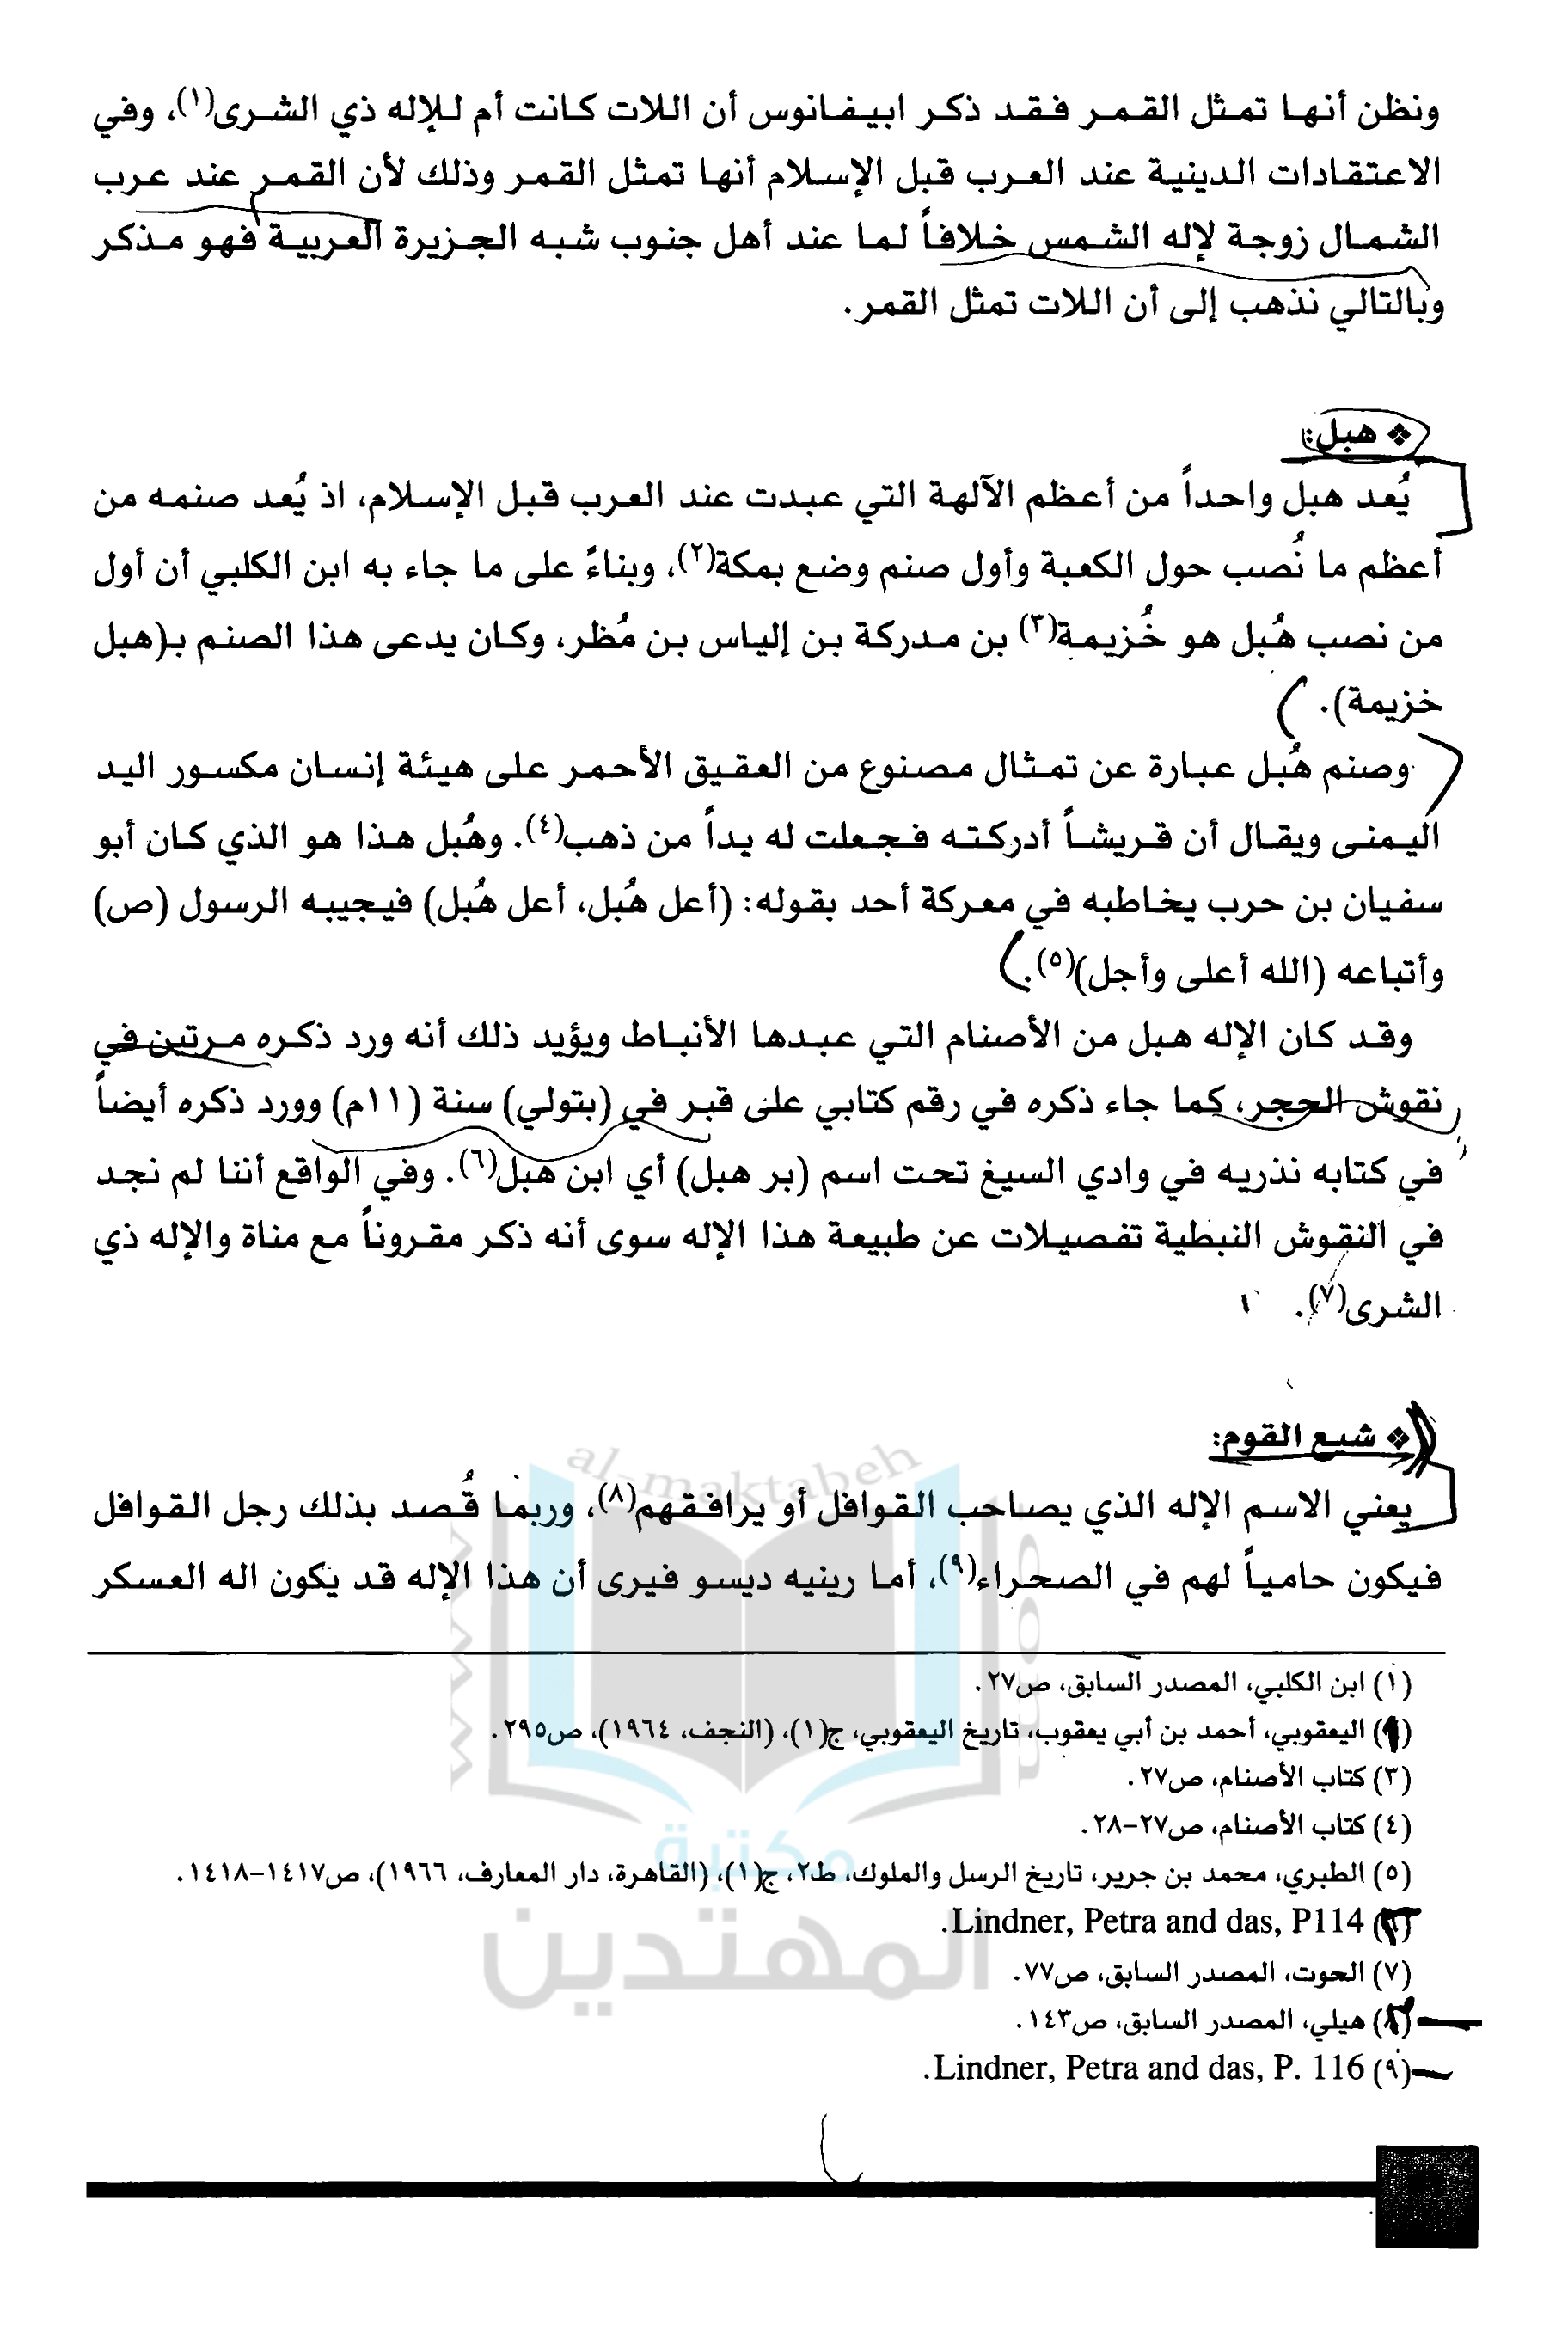 ونظن أنها تمثل القمر فقد ذكر ابيفانوس أن اللات كانت أم للإله ذي الشرى(١)، وفي
الاعتقادات الدينية عند العرب قبل الإسلام أنها تمثل القمر وذلك لأن القمر عند عرب
الشمال زوجة لإله الشمس خلافاً لما عند أهل جنوب شبه الجزيرة العربية فهو مذكر
وبالتالي نذهب إلى أن اللات تمثل القمر.
❖ هبل:
يُعد هبل واحداً من أعظم الآلهة التي عبدت عند العرب قبل الإسلام، اذ يُعد صنمه من
أعظم ما نُصب حول الكعبة وأول صنم وضع بمكة(٢)، وبناءً على ما جاء به ابن الكلبي أن أول
من نصب هُبل هو خُزيمة(٣) بن مدركة بن إلياس بن مُظر، وكان يدعى هذا الصنم بـ(هبل
خزيمة).
وصنم هُبل عبارة عن تمثال مصنوع من العقيق الأحمر على هيئة إنسان مكسور اليد
اليمنى ويقال أن قريشاً أدركته فجعلت له يداً من ذهب(٤). وهُبل هذا هو الذي كان أبو
سفيان بن حرب يخاطبه في معركة أحد بقوله: (أعل هُبل، أعل هُبل) فيجيبه الرسول (ص)
وأتباعه (الله أعلى وأجل)(٥).
وقد كان الإله هبل من الأصنام التي عبدها الأنباط ويؤيد ذلك أنه ورد ذكره مرتين في
نقوش الحجر، كما جاء ذكره في رقم كتابي على قبر في (بتولي) سنة (١١م) وورد ذكره أيضاً
في كتابه نذريه في وادي السيغ تحت اسم (بر هبل) أي ابن هبل(٦). وفي الواقع أننا لم نجد
في النقوش النبطية تفصيلات عن طبيعة هذا الإله سوى أنه ذكر مقروناً مع مناة والإله ذي
الشرى(٧).
❖ شيع القوم:
يعني الاسم الإله الذي يصاحب القوافل أو يرافقهم(٨)، وربما قُصد بذلك رجل القوافل
فيكون حامياً لهم في الصحراء(٩)، أما رينيه ديسو فيرى أن هذا الإله قد يكون اله العسكر
(١) ابن الكلبي، المصدر السابق، ص٢٧.
() اليعقوبي، أحمد بن أبي يعقوب، تاريخ اليعقوبي، ج(١)، (النجف، ١٩٦٤)، ص٢٩٥.
(٣) كتاب الأصنام، ص٢٧.
(٤) كتاب الأصنام، ص٢٧-٢٨.
(٥) الطبري، محمد بن جرير، تاريخ الرسل والملوك، ط٢، ج(١)، (القاهرة، دار المعارف، ١٩٦٦)، ص١٤١٧-١٤١٨.
() Lindner, Petra and das, P114.
(٧) الحوت، المصدر السابق، ص٧٧.
(٨) هيلي، المصدر السابق، ص١٤٣.
(٩) Lindner, Petra and das, P. 116.
al-maktabeh
مكتبة
المهتدين